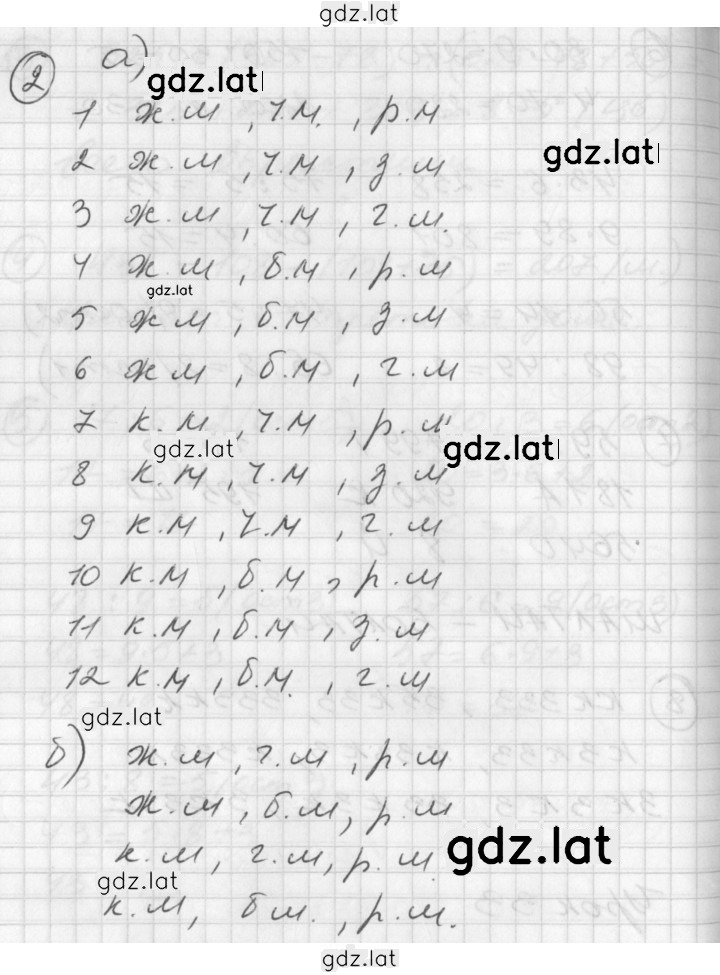 gdz.lat
2 а)
gdz.lat
1 ж.м, ч.м., р.м
gdz.lat
2 ж.м, ч.м, з.м
3 ж.м, ч.м, г.м.
4 ж.м, б.м, р.м
gdz.lat
5 ж.м, б.м, з.м
6 ж.м, б.м, г.м
7 к.м, ч.м, р.м
gdz.lat
gdz.lat
8 к.м, ч.м, з.м
9 к.м, ч.м, г.м
10 к.м, б.м, р.м
11 к.м, б.м, з.м
12 к.м, б.м., г.м
gdz.lat
б) ж.м, г.м, р.м
ж.м, б.м, р.м
к.м, г.м, р.м.
gdz.lat
gdz.lat
к.м, б м., р.м.
gdz.lat